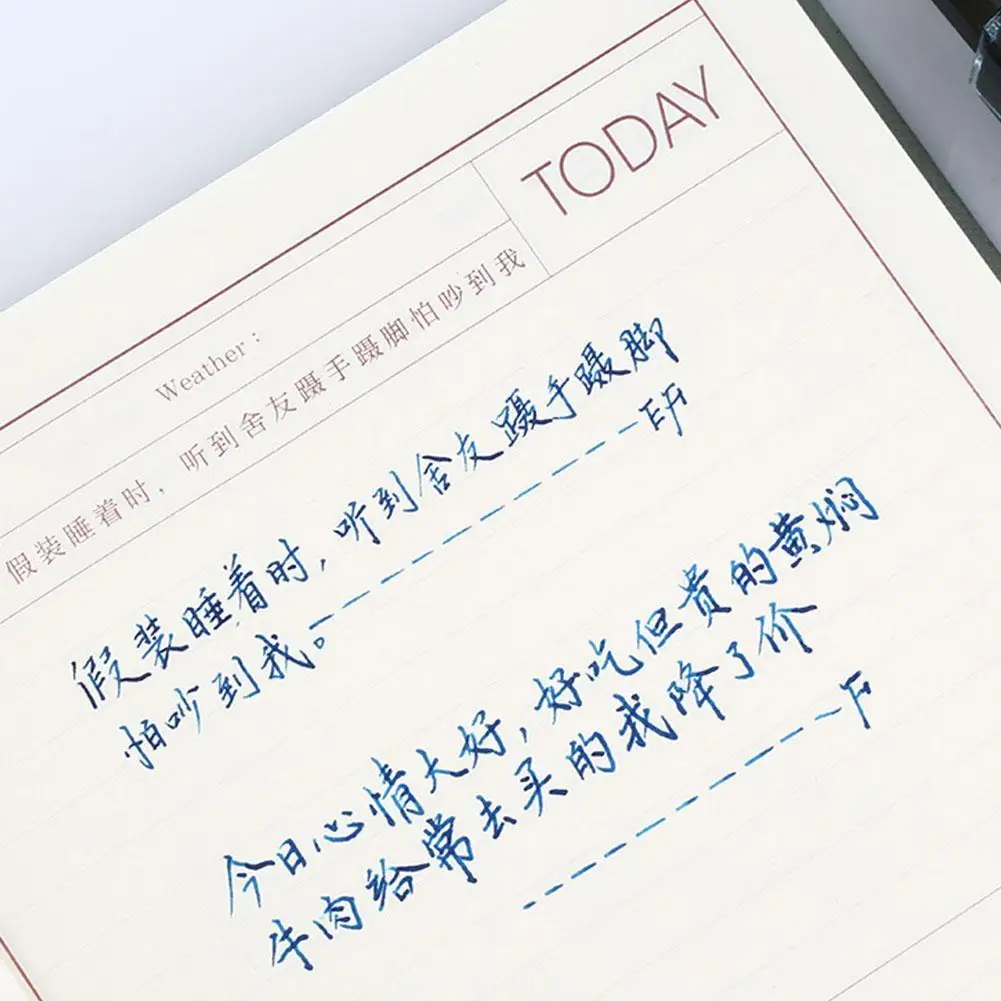 TODAY
Weather:
假装睡着时，听到舍友蹑手蹑脚怕吵到我
假装睡着时，听到舍友蹑手蹑脚
怕吵到我。------------EF
今日心情大好，好吃但贵的黄焖
牛肉给常去买的我降了价
------------F